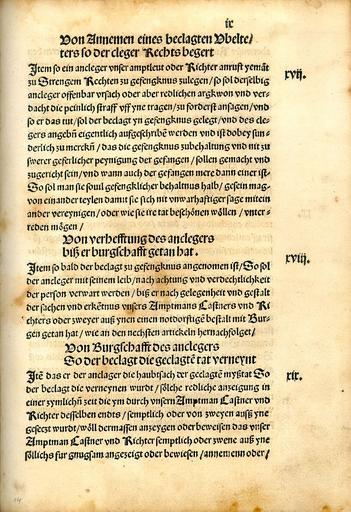 ix
Von Annemen eines beclagten Vbelte/
ters so der cleger Rechts begert
Item so ein ancleger vnser amptleut oder Richter anrufft yemāt
zu Strengem Rechten zu gefengknus zulegen/ so sol derselbig
ancleger offenbar vrsach oder aber redlichen argkwon vnd ver-
dacht die peinlich straff vff yne tragen/ zu forderst ansagen/ vnd
so er das tut/ sol der beclagt yn gefengknus gelegt/ vnd des cle-
gers angebñ eigentlich aufgeschribē werden vnd ist dobey sun-
derlich zu merckñ/ das die gefengknus zubehaltung vnd nit zu
swerer geferlicher peynigung der gefangen/ sollen gemacht vnd
zugericht sein/ vnd wann auch der gefangen mere dann einer ist-
So sol man sie souil gefengklicher behaltnus halb/ gesein mag-
von einander teylen damit sie sich nit vnwarhaftiger sage mitein
ander vereynigen/ oder wie sie ire tat beschönen wöllen/ vnter-
reden mögen/
xvij.
Von verhefftung des anclegers
biß er burgschafft getan hat.
Item so bald der beclagt zu gefengknus angenomen ist/ So sol
der ancleger mit seinem leib/ nach achtung vnd verdechtlichkeit
der person verwart werden/ biß er nach gelegenheit vnd gestalt
der sachen vnd erkētnus vnsers Amptmans Castners vnd Ri
chters oder zweyer auß ynen einen notdorftigē bestalt mit Bur-
gen getan hat/ wie an den nechsten artickeln hernachfolget/
xviij.
Von Burgschafft des anclegers
So der beclagt die geclagtē tat verneynt
Itē das er der anclager die haubtsach der geclagtē myßtat So
der beclagt die verneynen wurdt/ sölche redliche anzeigung in
einer zymlichñ zeit die ym durch vnsern Amptman Castner vnd
Richter desselben endts/ semptlich oder von zweyen auß yne
gesetzt wurdt/ wöll dermassen anzeygen oder beweisen das vnser
Amptman Castner vnd Richter semptlich oder zwene auß yne
söllichs fur gnugsam angezeigt oder bewiesen/ annemenn oder/
xix.